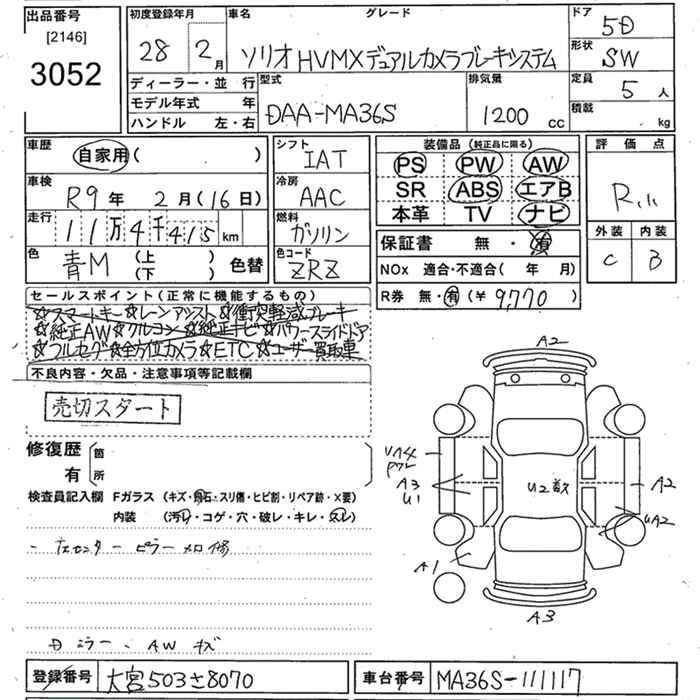 出品番号
[2146]
3052
初度登録年月 車名 グレード ドア 5D
28 2月 ソリオ HVMXデュアルカメラブレーキシステム 形状 SW
ディーラー・並 行 型式 排気量 定員 5 人
モデル年式 年 DAA-MA36S 1200 cc 積載 kg
ハンドル 左・右
車歴 自家用( )
車検 R9年 2月(16日)
走行 11万4千415km
色 青M (上 下) 色替
シフト IAT
冷房 AAC
燃料 ガソリン
色コード ZRZ
装備品 (純正品に限る)
PS PW AW
SR ABS エアB
本革 TV ナビ
保証書 無・有
NOx 適合・不適合( 年 月)
R券 無・有(¥ 9,770 )
評価点
R
外装 内装
C B
セールスポイント(正常に機能するもの)
☆スマートキー☆レーンアシスト☆衝突軽減ブレーキ
☆純正AW☆クルコン☆純正ナビ☆パワースライドドア
☆フルセグ☆全方位カメラ☆ETC☆ユーザー買取車
不良内容・欠品・注意事項等記載欄
売切スタート
修復歴 箇
有 所
検査員記入欄 Fガラス (キズ・飛石・スリ傷・ヒビ割・リペア跡・×要)
内装 (汚れ・コゲ・穴・破レ・キレ・スレ)
- 左センターピラー 修
Dミラー、AWキズ
A2
A3
U1
U2
A2
UA2
A1
A3
登録番号 大宮503さ8070
車台番号 MA36S-111117